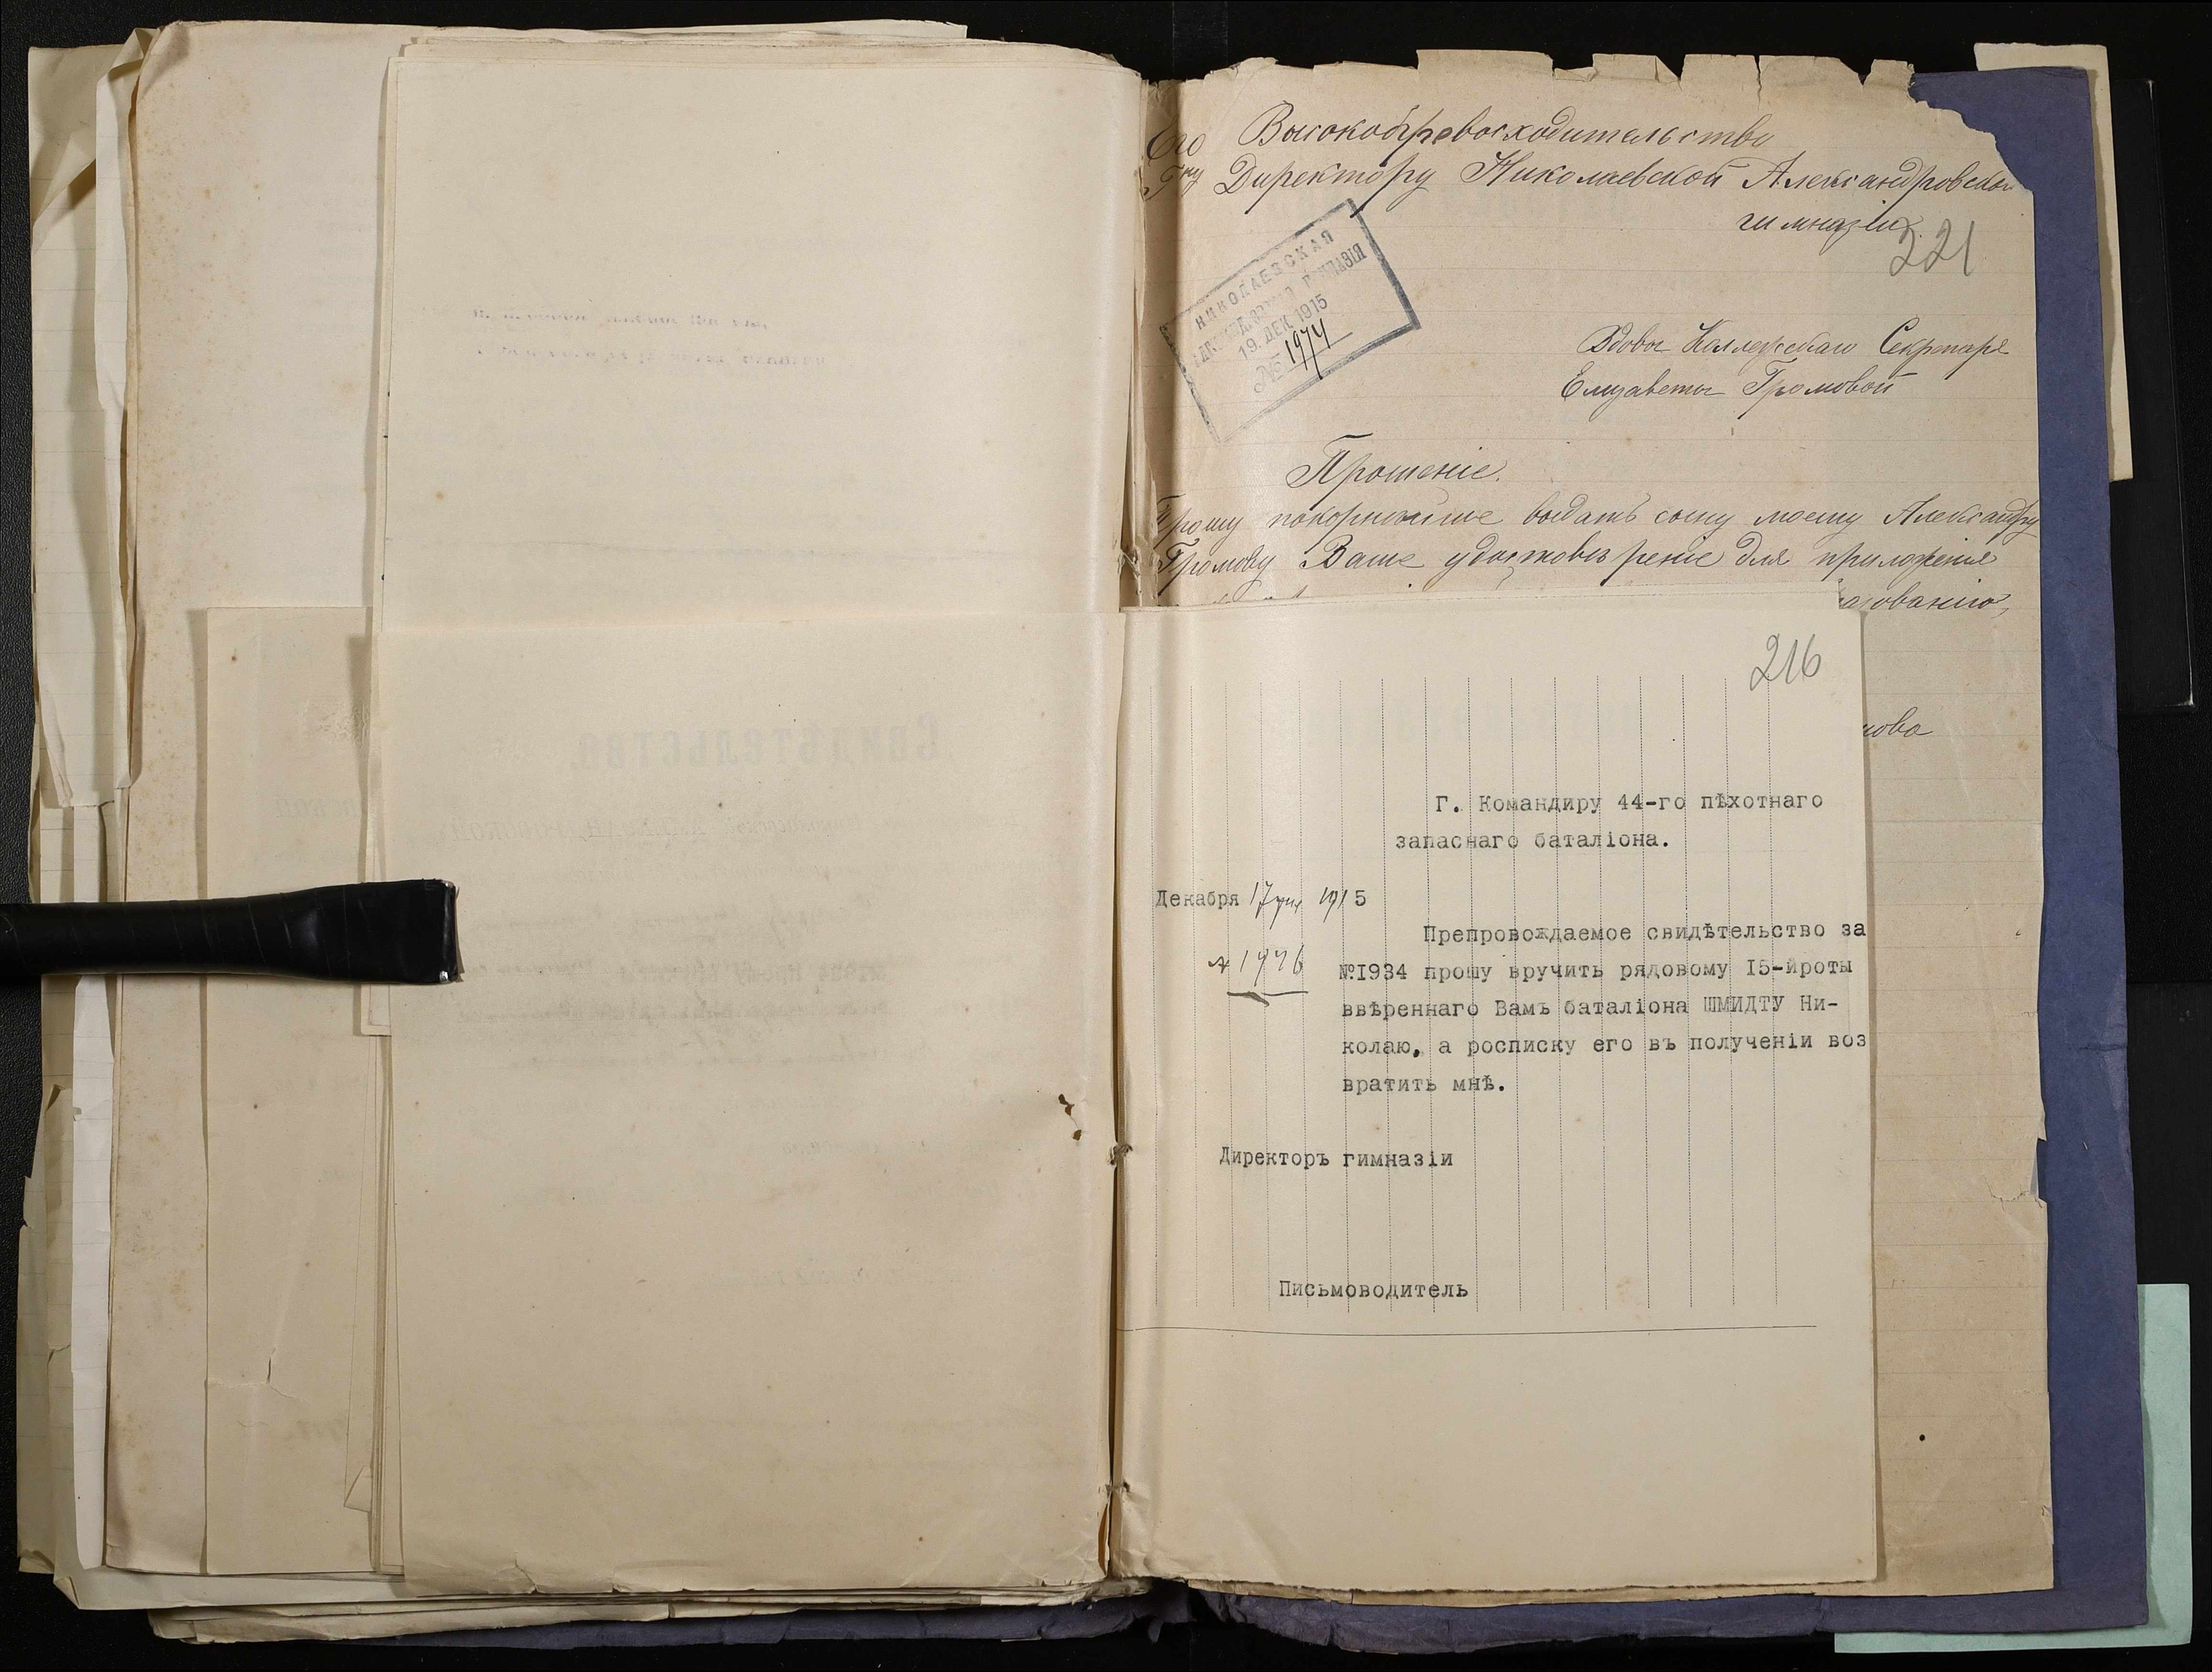 Его Высокопревосходительство
Гну Директору Николаевской Александровской
гимназіи
221
НИКОЛАЕВСКАЯ
ГИМНАЗІЯ
19. ДЕК. 1915
№ 1974
Вдовы Коллежскаго Секретаря
Елизаветы Громовой
Прошеніе.
Прошу покорнейше выдать сыну моему Александру
Громову Ваше удостовѣреніе для приложенія
216
Г. Командиру 44-го пѣхотнаго
запаснаго баталіона.
Декабря 17 дня 1915
№ 1946
Препровождаемое свидѣтельство за
№I934 прошу вручить рядовому I5-йроты
ввѣреннаго Вамъ баталіона ШМИДТУ Ни-
колаю, а росписку его въ полученіи воз
вратить мнѣ.
Директоръ гимназіи
Письмоводитель
Свидѣтельство.